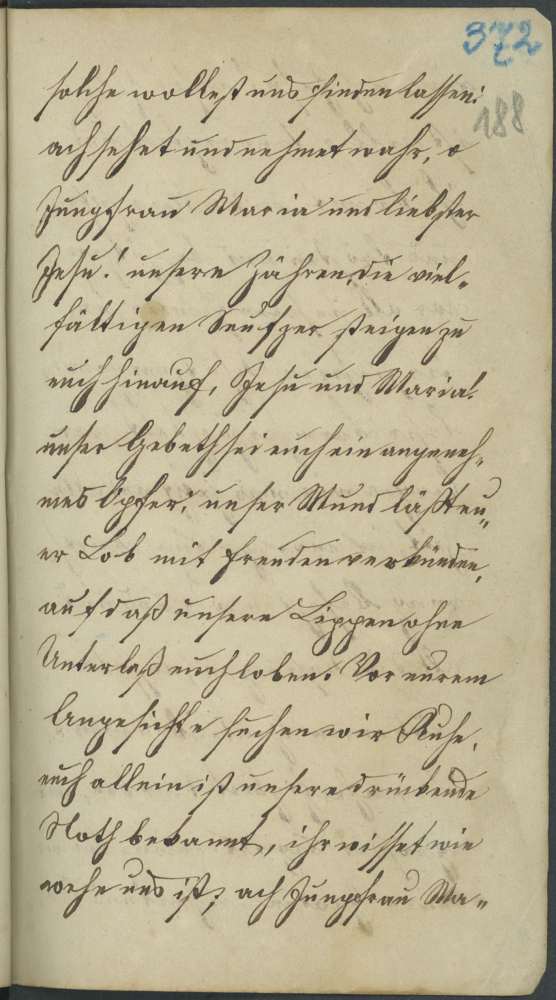 372
188
solche wollest uns finden lassen:
ach sehet und nehmet wahr, o
Jungfrau Maria und liebster
Jesu! unsere Zähren, die viel-
fältigen Seufzer steigen zu
euch hinauf, Jesu und Maria!
unser Gebeth sei euch ein angeneh-
mes Opfer; unser Mund läßt eu-
er Lob mit Freuden verkünden,
auf daß unsere Lippen ohne
Unterlaß euch loben. Vor eurem
Angesichte suchen wir Ruhe,
euch allein ist unsere drückende
Noth bekannt, ihr wisset wie
wehe uns ist; ach Jungfrau Ma-